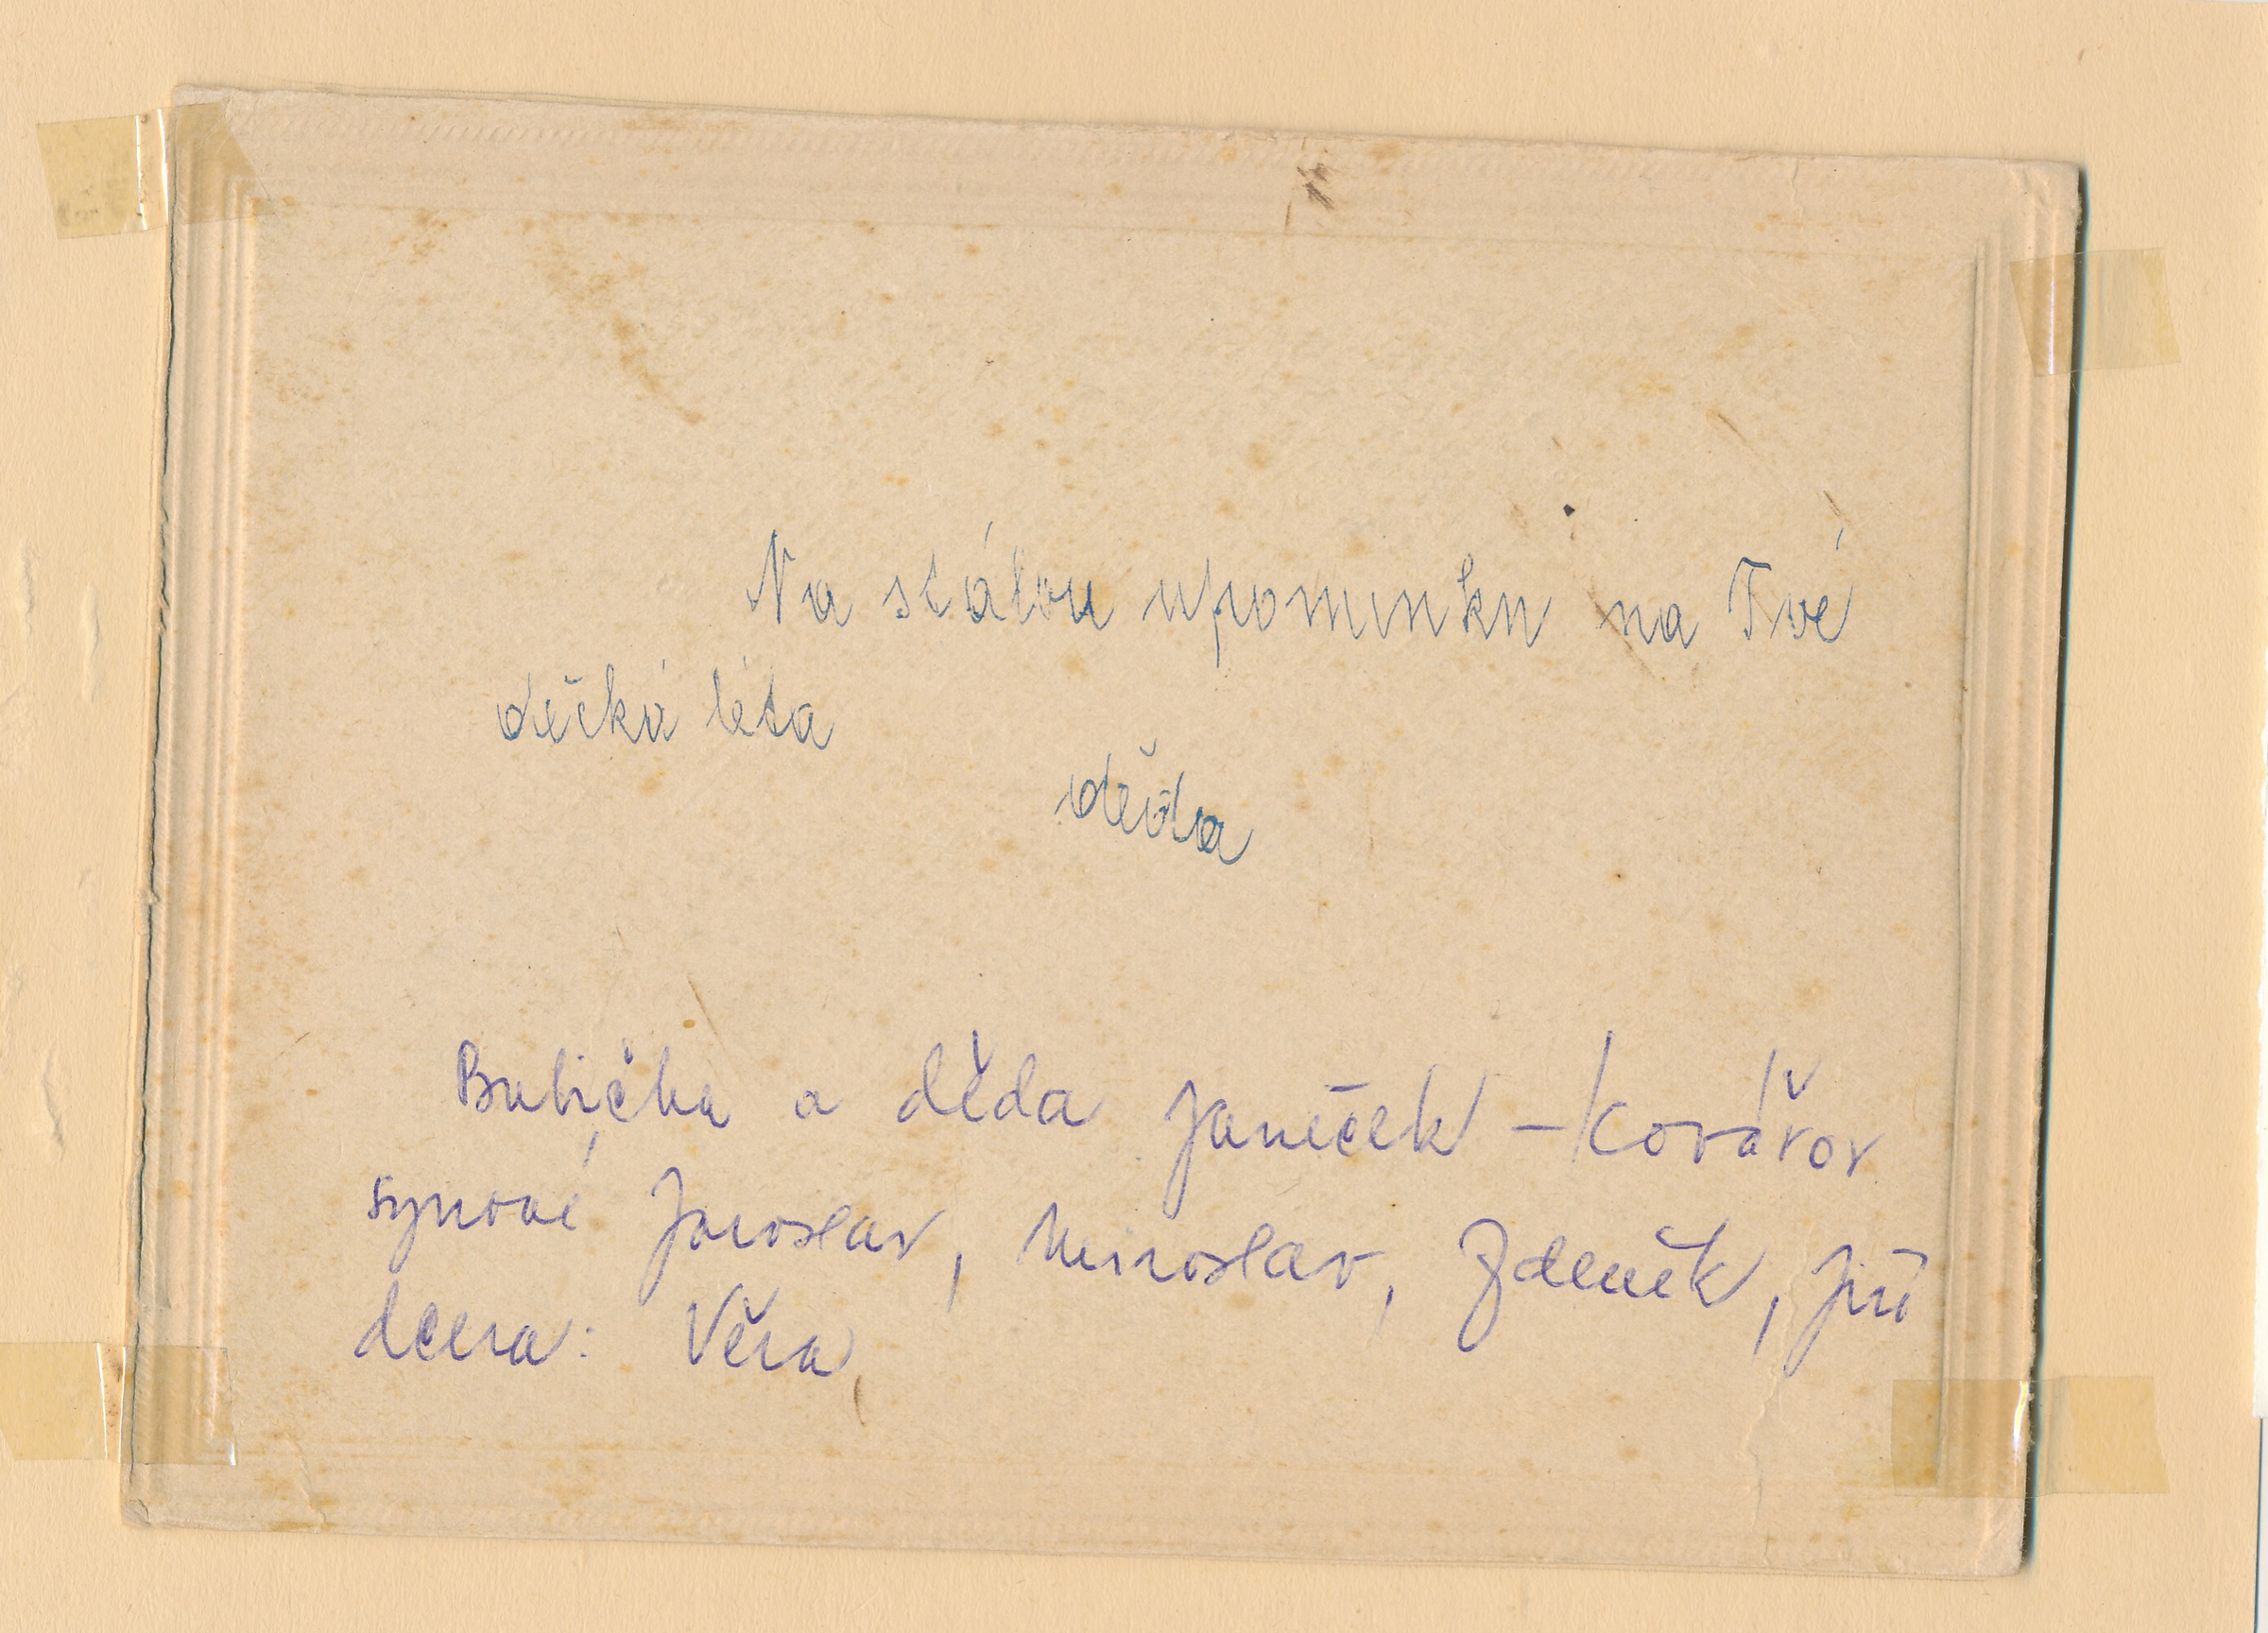 Na stálou upomínku na Tvé
děcká léta
děda
Babička a děda Janeček – Kovářov
synové Jaroslav, Miroslav, Zdeněk, Jiří
dcera: Věra